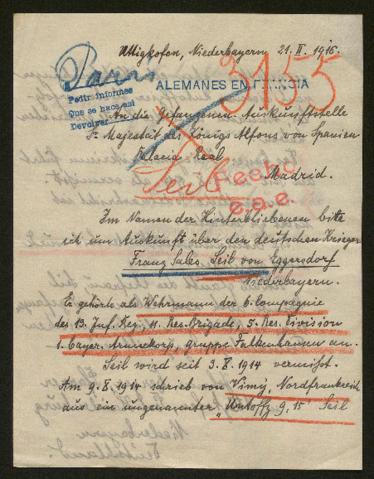 Uttigkofen, Niederbayern, 21. II. 1916.
Paris
3155
ALEMANES EN FRANCIA
Pedir informes
Que se hace así
Devolver
An die Gefangenen-Auskunftstelle
Sr Majestät des Königs Alfons von Spanien
Palacio Real
Madrid.
Seib
Recho
e.a.e.
Im Namen der Hinterbliebenen bitte
ich um Auskunft über den deutschen Krieger
Franz Sales. Seil von Eggersdorf
Niederbayern.
Er gehörte als Wehrmann der 6. Compagnie
des 13. Inf. Reg., 11. Res. Brigade, 5. Res. Division
1. bayer. Armeekorp, gruppe Falkenhausen an.
Seil wird seit 3. 8. 1914 vermisst.
Am 9. 8. 1914 schrieb von Vimy, Nordfrankreich
aus ein ungenannter "Untoffz 9, 15" Seil